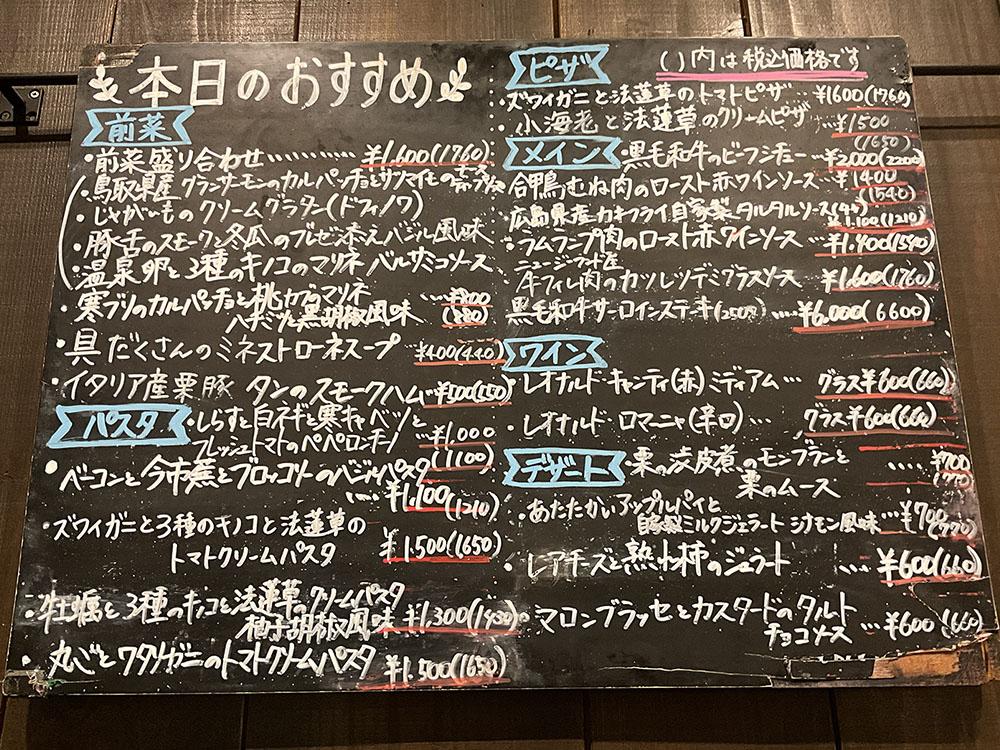 本日のおすすめ
前菜
・前菜盛り合わせ………… ¥1,600(1760)
・鳥取県産 グランサーモンのカルパッチョとサツマイモの
・じゃがいものクリームグラタン(ドフィノワ)
・豚舌のスモークと冬瓜のブレゼ添え バジル風味
・温泉卵と3種のキノコのマリネ バルサミコソース
・寒ブリのカルパッチョと桃カブのマリネ
ハチミツと黒胡椒風味 …¥800
(880)
・具だくさんのミネストローネスープ ¥400(440)
・イタリア産栗豚 タンのスモークハム…¥500(550)
パスタ
・しらすと白ネギと寒キャベツと
フレッシュトマトのペペロンチーノ ¥1,000
(1100)
・ベーコンと今市蕪とブロッコリーのバジルパスタ
…. ¥1,100(1210)
・ズワイガニと3種のキノコと法蓮草の
トマトクリームパスタ ¥1,500(1650)
・牡蠣と3種のキノコと法蓮草のクリームパスタ
柚子胡椒風味 ¥1,300(1430)
・丸ごとワタリガニのトマトクリームパスタ ¥1,500(1650)
ピザ
( )内は税込価格です
・ズワイガニと法蓮草のトマトピザ… ¥1600(1760)
・小海老と法蓮草のクリームピザ …¥1500
(1650)
メイン
・黒毛和牛のビーフシチュー… ¥2,000(2200)
合鴨むね肉のロースト赤ワインソース …¥1400
(1540)
広島県産カキフライ自家製タルタルソース
¥1,100(1210)
・ラムランプ肉のロースト赤ワインソース …¥1,400(1540)
ニュージーランド産
牛フィレ肉のカツレツデミグラスソース …¥1,600(1760)
黒毛和牛サーロインステーキ(250g) …. ¥6,000(6600)
ワイン
・レオナルド・キャンティ(赤)ミディアム… グラス¥600(660)
・レオナルド・ロマニャ(辛口) …グラス¥600(660)
デザート
・栗の渋皮煮のモンブランと
栗のムース …. ¥700
(770)
・あたたかいアップルパイと
自家製ミルクジェラート シナモン風味… ¥700(770)
・レアチーズと熟れ柿のジェラート …. ¥600(660)
・マロングラッセとカスタードのタルト
チョコソース … ¥600(660)